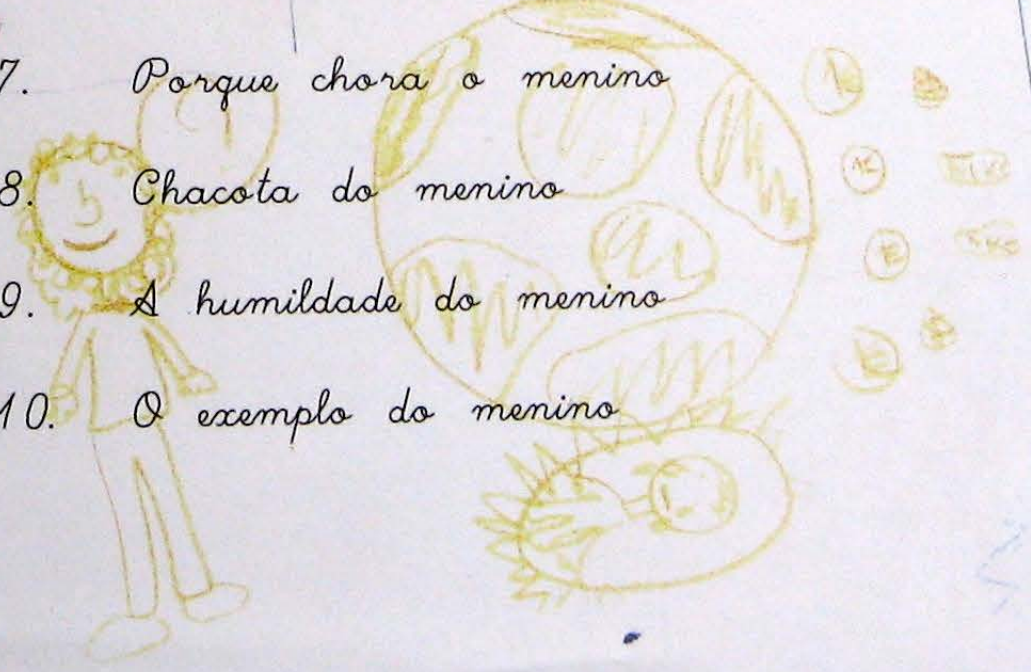 7. Porque chora o menino
8. Chacota do menino
9. A humildade do menino
10. O exemplo do menino